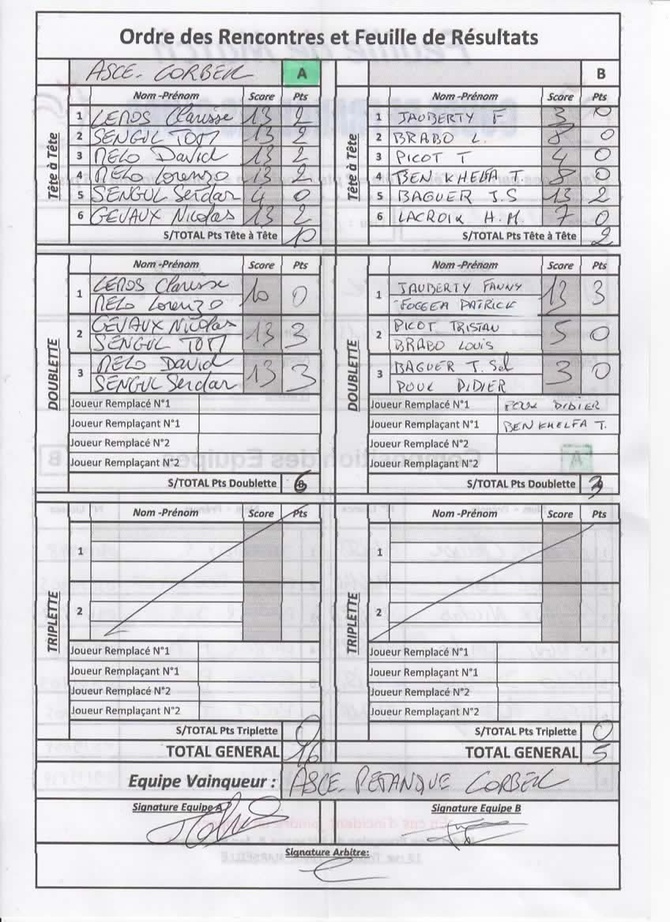 Ordre des Rencontres et Feuille de Résultats
ASCE. CORBEIL A B
Nom -Prénom Score Pts Nom -Prénom Score Pts
Tête à Tête Tête à Tête
1 LEROS Clarisse 13 2 1 JAUBERTY F 3 0
2 SENGUL TOM 13 2 2 BRABO L. 8 0
3 MELO David 13 2 3 PICOT T 4 0
4 MELO Lorenzo 13 2 4 BEN KHELFA T. 8 0
5 SENGUL Serdar 4 0 5 BAGUER J.S 13 2
6 GEVAUX Nicolas 13 2 6 LACROIX H.M 7 0
S/TOTAL Pts Tête à Tête 10 S/TOTAL Pts Tête à Tête 2
Nom -Prénom Score Pts Nom -Prénom Score Pts
DOUBLETTE DOUBLETTE
1 LEROS Clarisse 10 0 1 JAUBERTY FANNY 13 3
MELO Lorenzo PATRICK
2 GEVAUX Nicolas 13 3 2 PICOT TRISTAN 5 0
SENGUL TOM BRABO LOUIS
3 MELO David 13 3 3 BAGUER 3 0
SENGUL Serdar POUX DIDIER
Joueur Remplacé N°1 Joueur Remplacé N°1 POUX DIDIER
Joueur Remplaçant N°1 Joueur Remplaçant N°1 BEN KHELFA T.
Joueur Remplacé N°2 Joueur Remplacé N°2
Joueur Remplaçant N°2 Joueur Remplaçant N°2
S/TOTAL Pts Doublette 6 S/TOTAL Pts Doublette 3
Nom -Prénom Score Pts Nom -Prénom Score Pts
TRIPLETTE TRIPLETTE
1 1
2 2
Joueur Remplacé N°1 Joueur Remplacé N°1
Joueur Remplaçant N°1 Joueur Remplaçant N°1
Joueur Remplacé N°2 Joueur Remplacé N°2
Joueur Remplaçant N°2 Joueur Remplaçant N°2
S/TOTAL Pts Triplette 0 S/TOTAL Pts Triplette 0
TOTAL GENERAL 16 TOTAL GENERAL 5
Equipe Vainqueur : ASCE. PETANQUE CORBEIL
Signature Equipe A Signature Equipe B
Signature Arbitre: